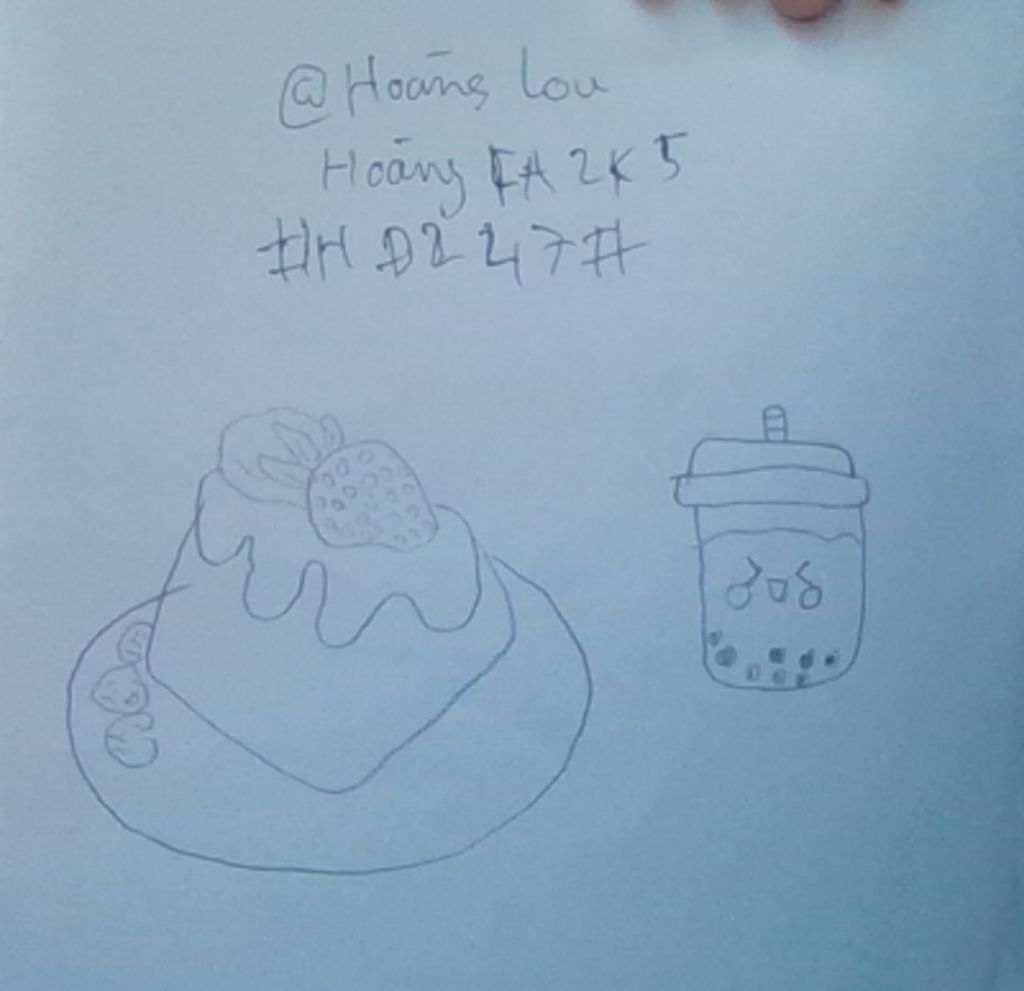 @Hoāng Lou
Hoāng FA2K5
#HD2247#